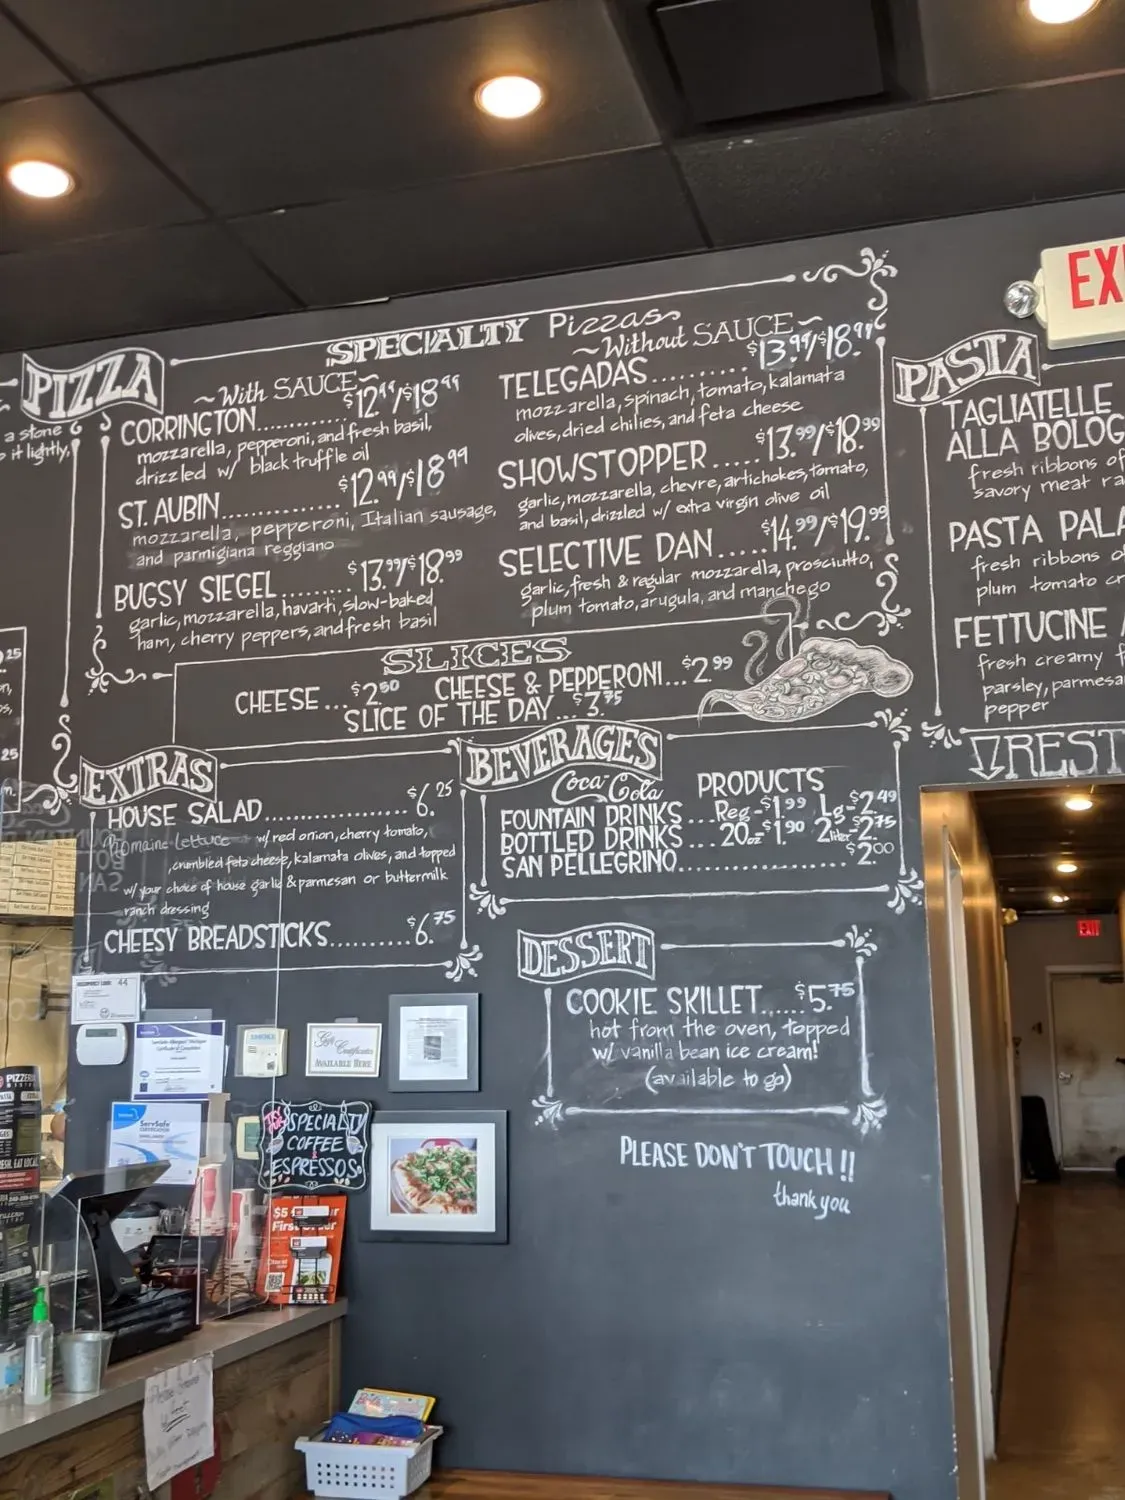 EXI
PIZZA
a stone
o it lightly,
SPECIALTY Pizzas
~With SAUCE~
CORRINGTON............$12.99/$18.99
mozzarella, pepperoni, and fresh basil,
drizzled w/ black truffle oil
ST. AUBIN...............$12.99/$18.99
mozzarella, pepperoni, Italian sausage,
and parmigiana reggiano
BUGSY SIEGEL.........$13.99/$18.99
garlic, mozzarella, havarti, slow-baked
ham, cherry peppers, and fresh basil
~Without SAUCE~
TELEGADAS..........$13.99/$18.99
mozzarella, spinach, tomato, kalamata
olives, dried chilies, and feta cheese
SHOWSTOPPER.....$13.99/$18.99
garlic, mozzarella, chevre, artichokes, tomato,
and basil, drizzled w/ extra virgin olive oil
SELECTIVE DAN.....$14.99/$19.99
garlic, fresh & regular mozzarella, prosciutto,
plum tomato, arugula, and manchego
PASTA
TAGLIATELLE
ALLA BOLOG
fresh ribbons of
savory meat ra
PASTA PALA
fresh ribbons o
plum tomato cr
FETTUCINE
fresh creamy f
parsley, parmesa
pepper
REST
SLICES
CHEESE...$2.50 CHEESE & PEPPERONI...$2.99
SLICE OF THE DAY...$3.75
EXTRAS
HOUSE SALAD....................$6.25
Romaine lettuce w/ red onion, cherry tomato,
crumbled feta cheese, kalamata olives, and topped
w/ your choice of house garlic & parmesan or buttermilk
ranch dressing
CHEESY BREADSTICKS..........$6.75
BEVERAGES
Coca-Cola PRODUCTS
FOUNTAIN DRINKS...Reg-$1.99 Lg-$2.49
BOTTLED DRINKS...20oz-$1.90 2liter-$2.75
SAN PELLEGRINO..................$2.00
DESSERT
COOKIE SKILLET......$5.75
hot from the oven, topped
w/ vanilla bean ice cream!
(available to go)
PLEASE DON'T TOUCH!!
thank you
44
ServSafe
Gift
Certificates
AVAILABLE HERE
TRY OUR
SPECIALTY
COFFEE
&
ESPRESSOS
PIZZERI
$5
First Order
EXIT